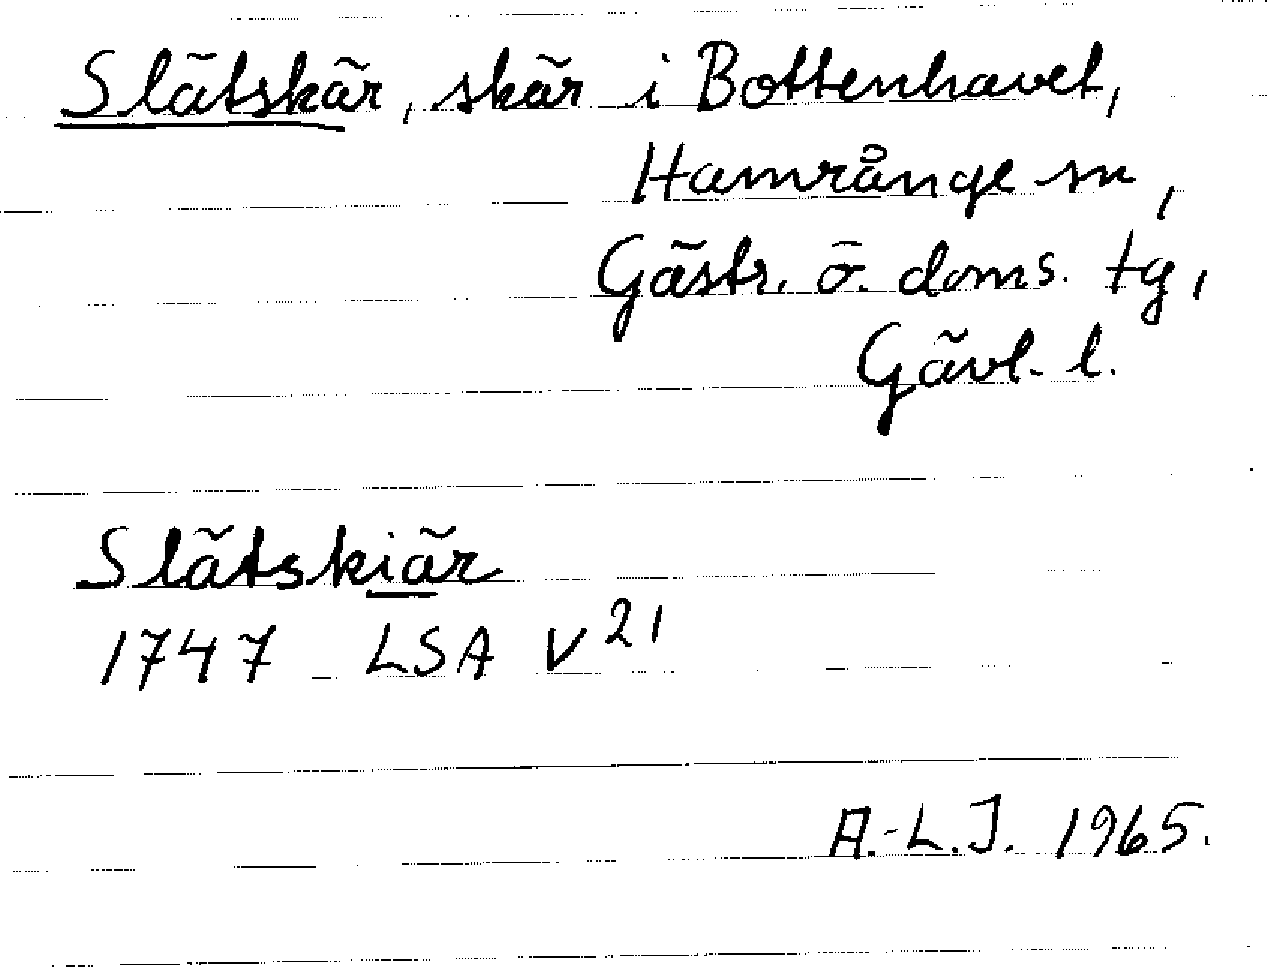 Slätskär, skär i Bottenhavet,
Hamrånge sn,
Gästr. ö. doms. tg,
Gävl. l.
Slätskiär
1747 LSA V 21
A.-L.J. 1965.